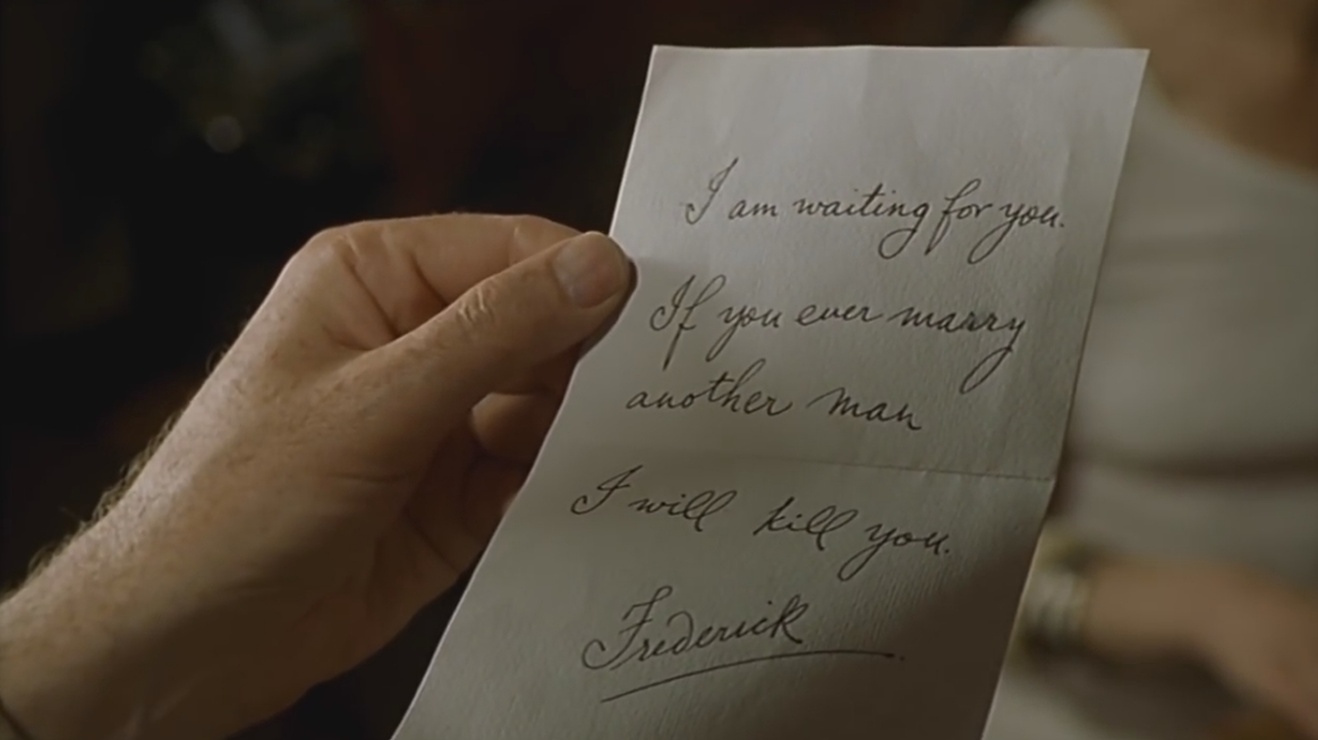 I am waiting for you.
If you ever marry
another man
I will kill you.
Frederick